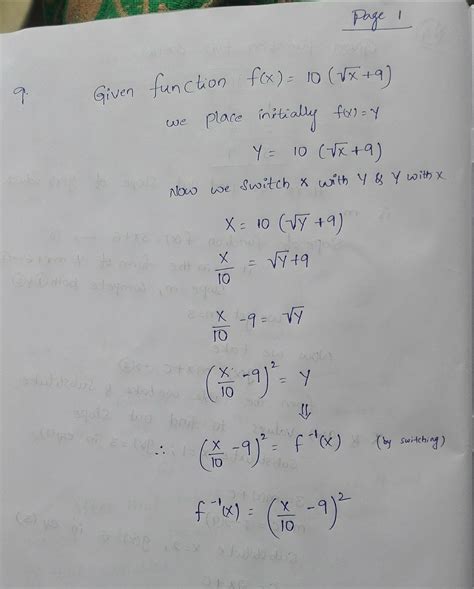 Page 1
9. Given function f(x) = 10 (√x + 9)
we place initially f(x) = Y
Y = 10 (√x + 9)
Now we switch x with Y & Y with x
X = 10 (√Y + 9)
x/10 = √Y + 9
x/10 - 9 = √Y
(x/10 - 9)² = Y
⇓
∴ (x/10 - 9)² = f⁻¹(x) (by switching)
f⁻¹(x) = (x/10 - 9)²